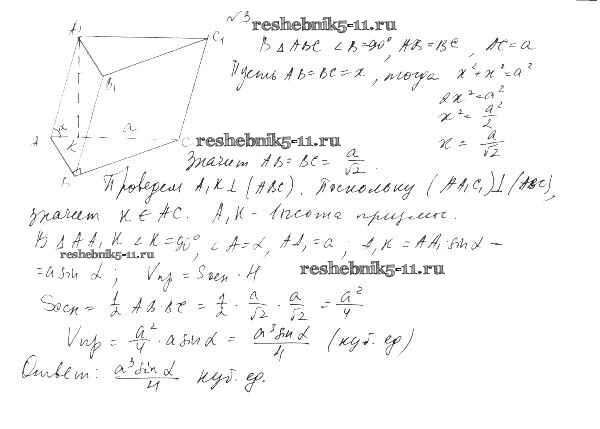 №3 reshebnik5-11.ru
A₁ C₁ B₁ A α K a C B
В △ ABC ∠ B = 90°, AB = BC, AC = a
Пусть AB = BC = x, тогда x² + x² = a²
2x² = a²
x² = a²/2
x = a/√2
reshebnik5-11.ru
Значит AB = BC = a/√2.
Проведем A₁K ⊥ (ABC). Поскольку (AA₁C₁) ⊥ (ABC),
значит K ∈ AC. A₁K - высота призмы.
В △ AA₁K ∠ K = 90°, ∠ A = α, AA₁ = a; A₁K = AA₁ sin α =
reshebnik5-11.ru
= a sin α; Vпр = Sосн · H
reshebnik5-11.ru
Sосн = 1/2 AB·BC = 1/2 · a/√2 · a/√2 = a²/4
Vпр = a²/4 · a sin α = a³ sin α/4 (куб. ед)
Ответ: a³ sin α/4 куб. ед.